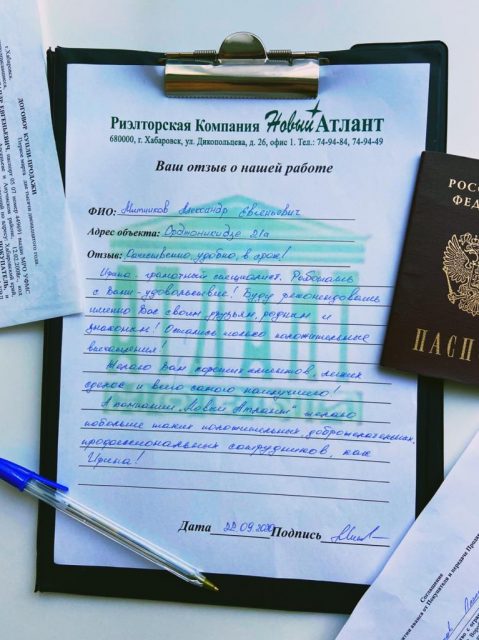 Риэлторская Компания Новый Атлант
680000, г. Хабаровск, ул. Дикопольцева, д. 26, офис 1. Тел.: 74-94-84, 74-94-49
Ваш отзыв о нашей работе
ФИО: Митников Александр Евгеньевич
Адрес объекта: Орджоникидзе 21а
Отзыв: Качественно, удобно, в срок!
Ирина - грамотный специалист. Работать
с Вами - удовольствие! Буду рекомендовать
именно Вас своим друзьям, родным и
знакомым! Остались только положительные
впечатления!
Желаю Вам хороших клиентов, легких
сделок и всего самого наилучшего!
А компании "Новый Атлант" желаю
побольше таких положительных, доброжелательных,
профессиональных сотрудников, как
Ирина!
Дата 22.09.2020 Подпись
ДОГОВОР КУПЛИ-ПРОДАЖИ
г. Хабаровск,
РОС
ФЕД
ПАСП
Соглашение